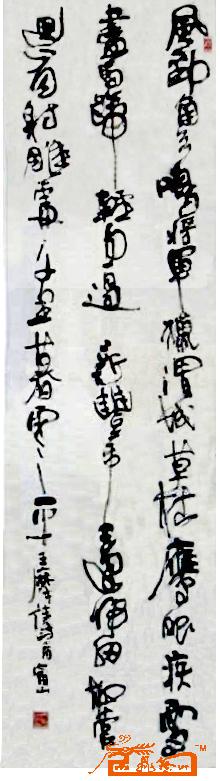 風勁角弓鳴將軍獵渭城草枯鷹眼疾雪
盡馬蹄輕忽過新豐市還歸細柳營
迴看射雕處千里暮雲平
王摩詰詩